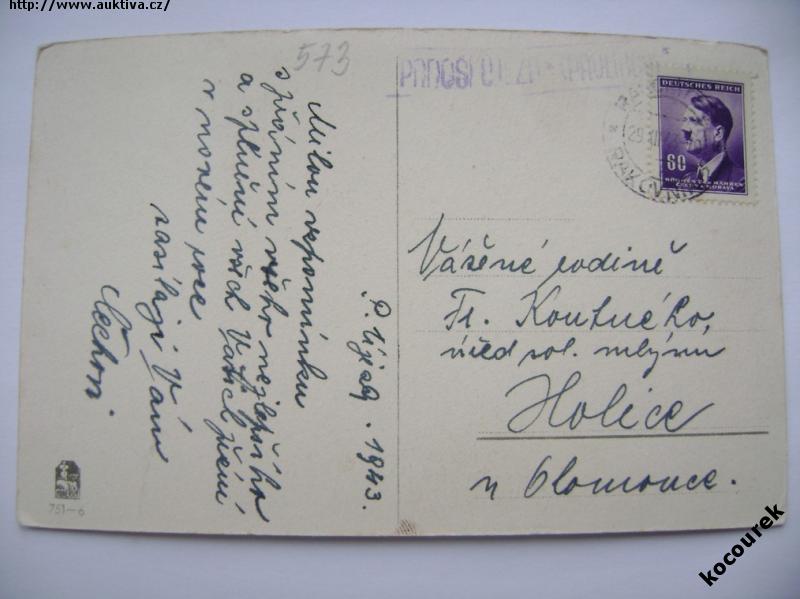 http://www.auktiva.cz/
573
Milou vzpomínku
s přáním všeho nejlepšího
a splnění všech Vašich přání
v novém roce
zasílají Vám
P. Újezd. 1943.
DEUTSCHES REICH
60
BÖHMEN UND MÄHREN
ČECHY A MORAVA
29 XII
RAKOVNÍK
Vážené rodině
Fr. Koutného,
úřed. rol. mlýnu
Holice
u Olomouce.
751-6
kocourek